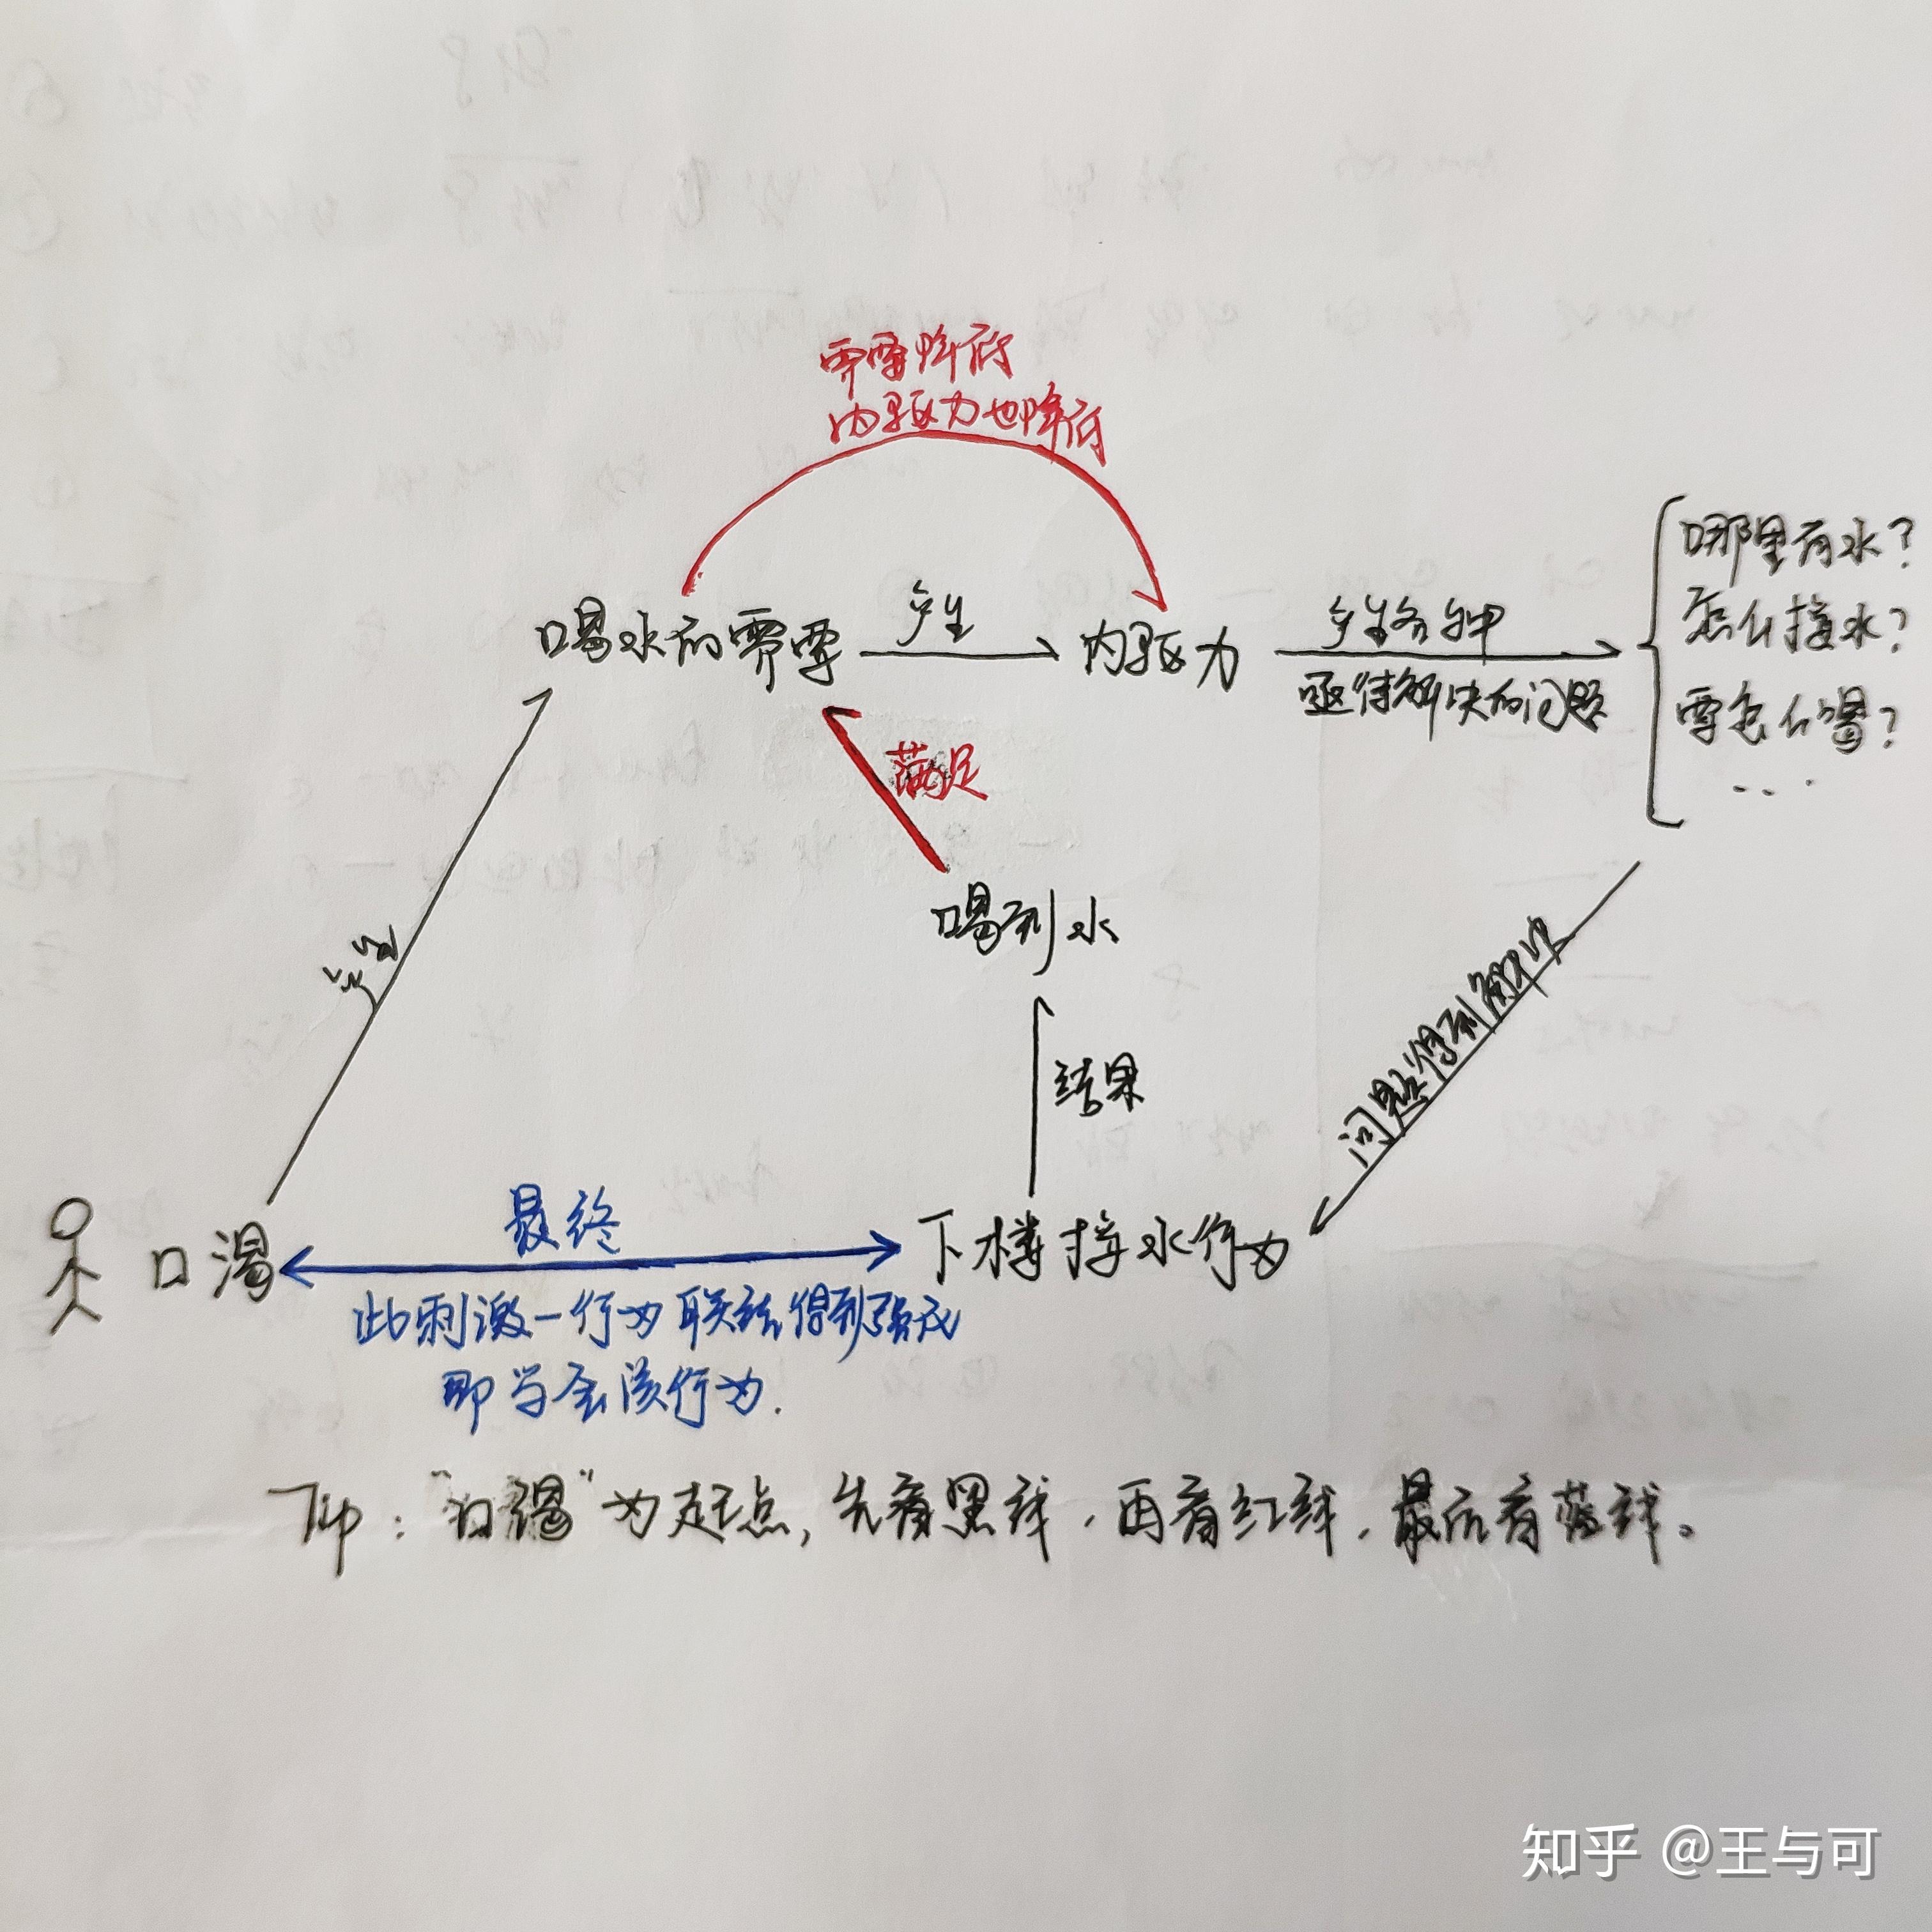 需要降低
内驱力也降低
喝水的需要
产生
内驱力
产生各种
亟待解决的问题
哪里有水？
怎么接水？
要怎么喝？
...
满足
喝到水
产生
结果
问题得到解决
口渴
最终
下楼接水行为
此刺激—行为联结得到强化
即学会该行为.
Tip："口渴"为起点，先看黑线，再看红线，最后看蓝线。
知乎 @王与可